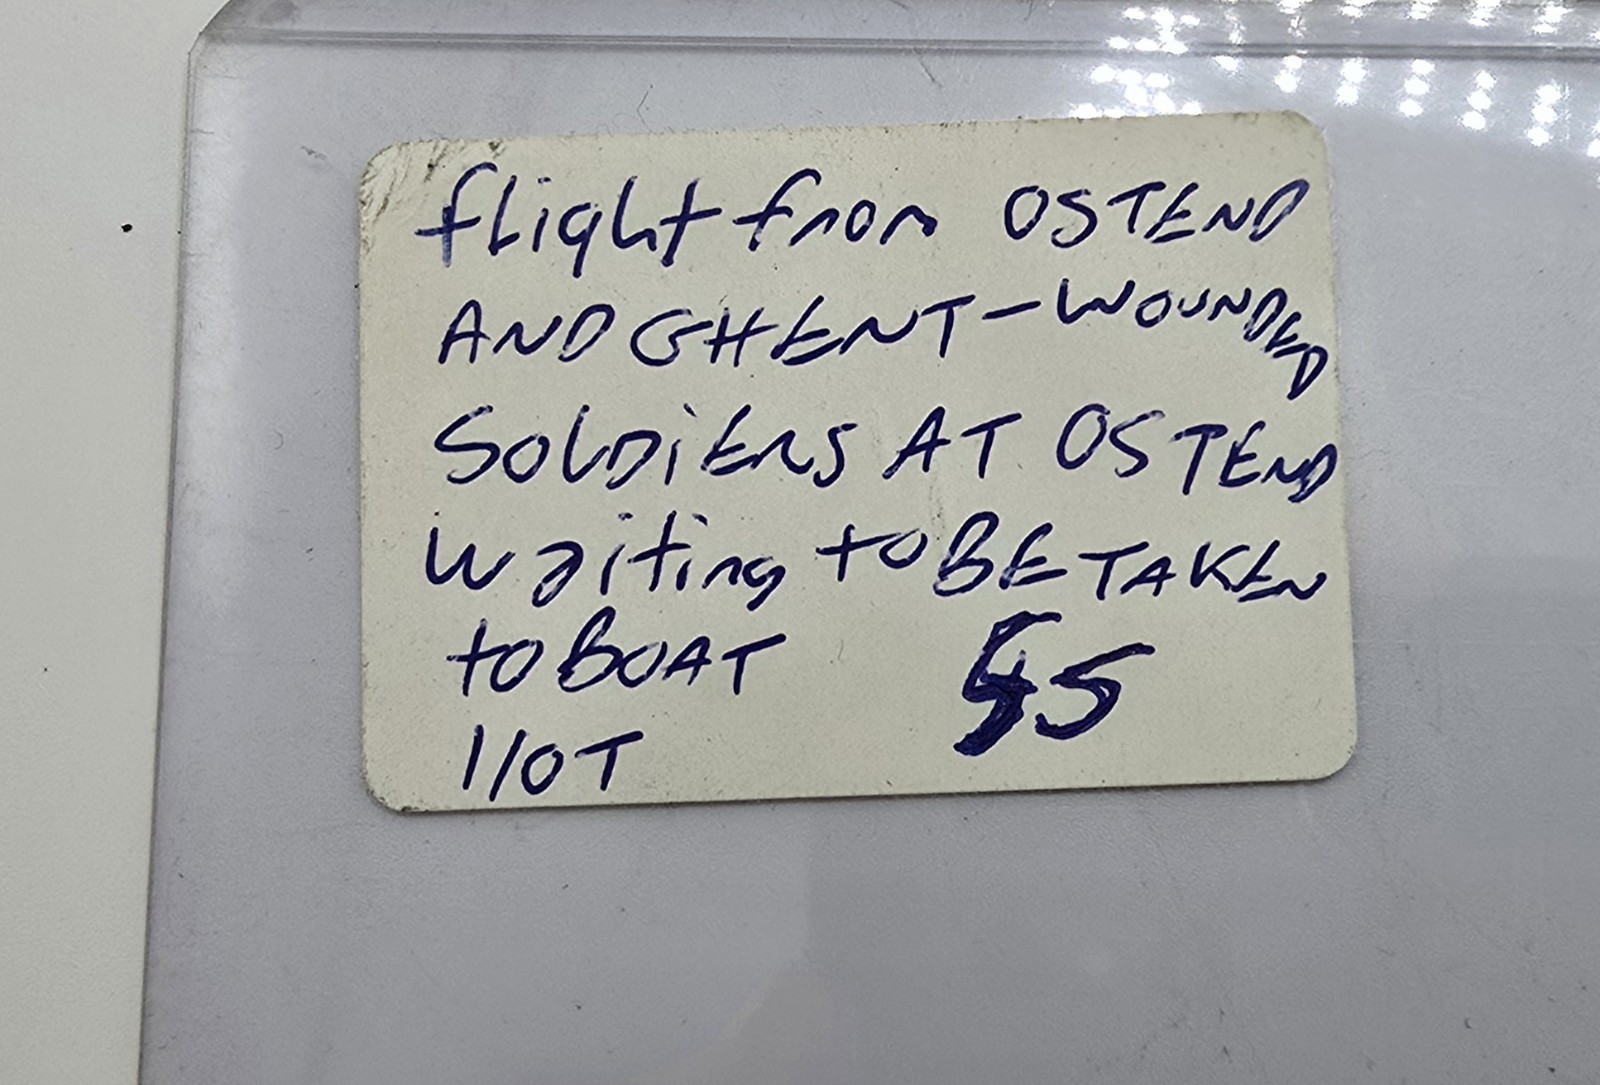 flight from OSTEND
AND GHENT - WOUNDED
SOLDiERS AT OSTEND
waiting to BE TAKEN
to BOAT